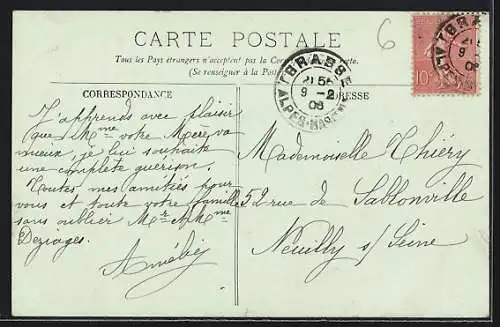 CARTE POSTALE
Tous les Pays étrangers n'acceptent pas la Correspondance
(Se renseigner à la Poste)
CORRESPONDANCE
ADRESSE
GRASSE
21 55
9 - 2
06
ALPES-MARITIMES
6
10
J'apprends avec plaisir
que Mme votre Mère va
mieux, je lui souhaite
une complète guérison.
Toutes mes amitiés pour
vous et toute votre famille
sans oublier Mr & Mme
Mademoiselle Thiéry
52 rue de Sablonville
Neuilly s/ Seine